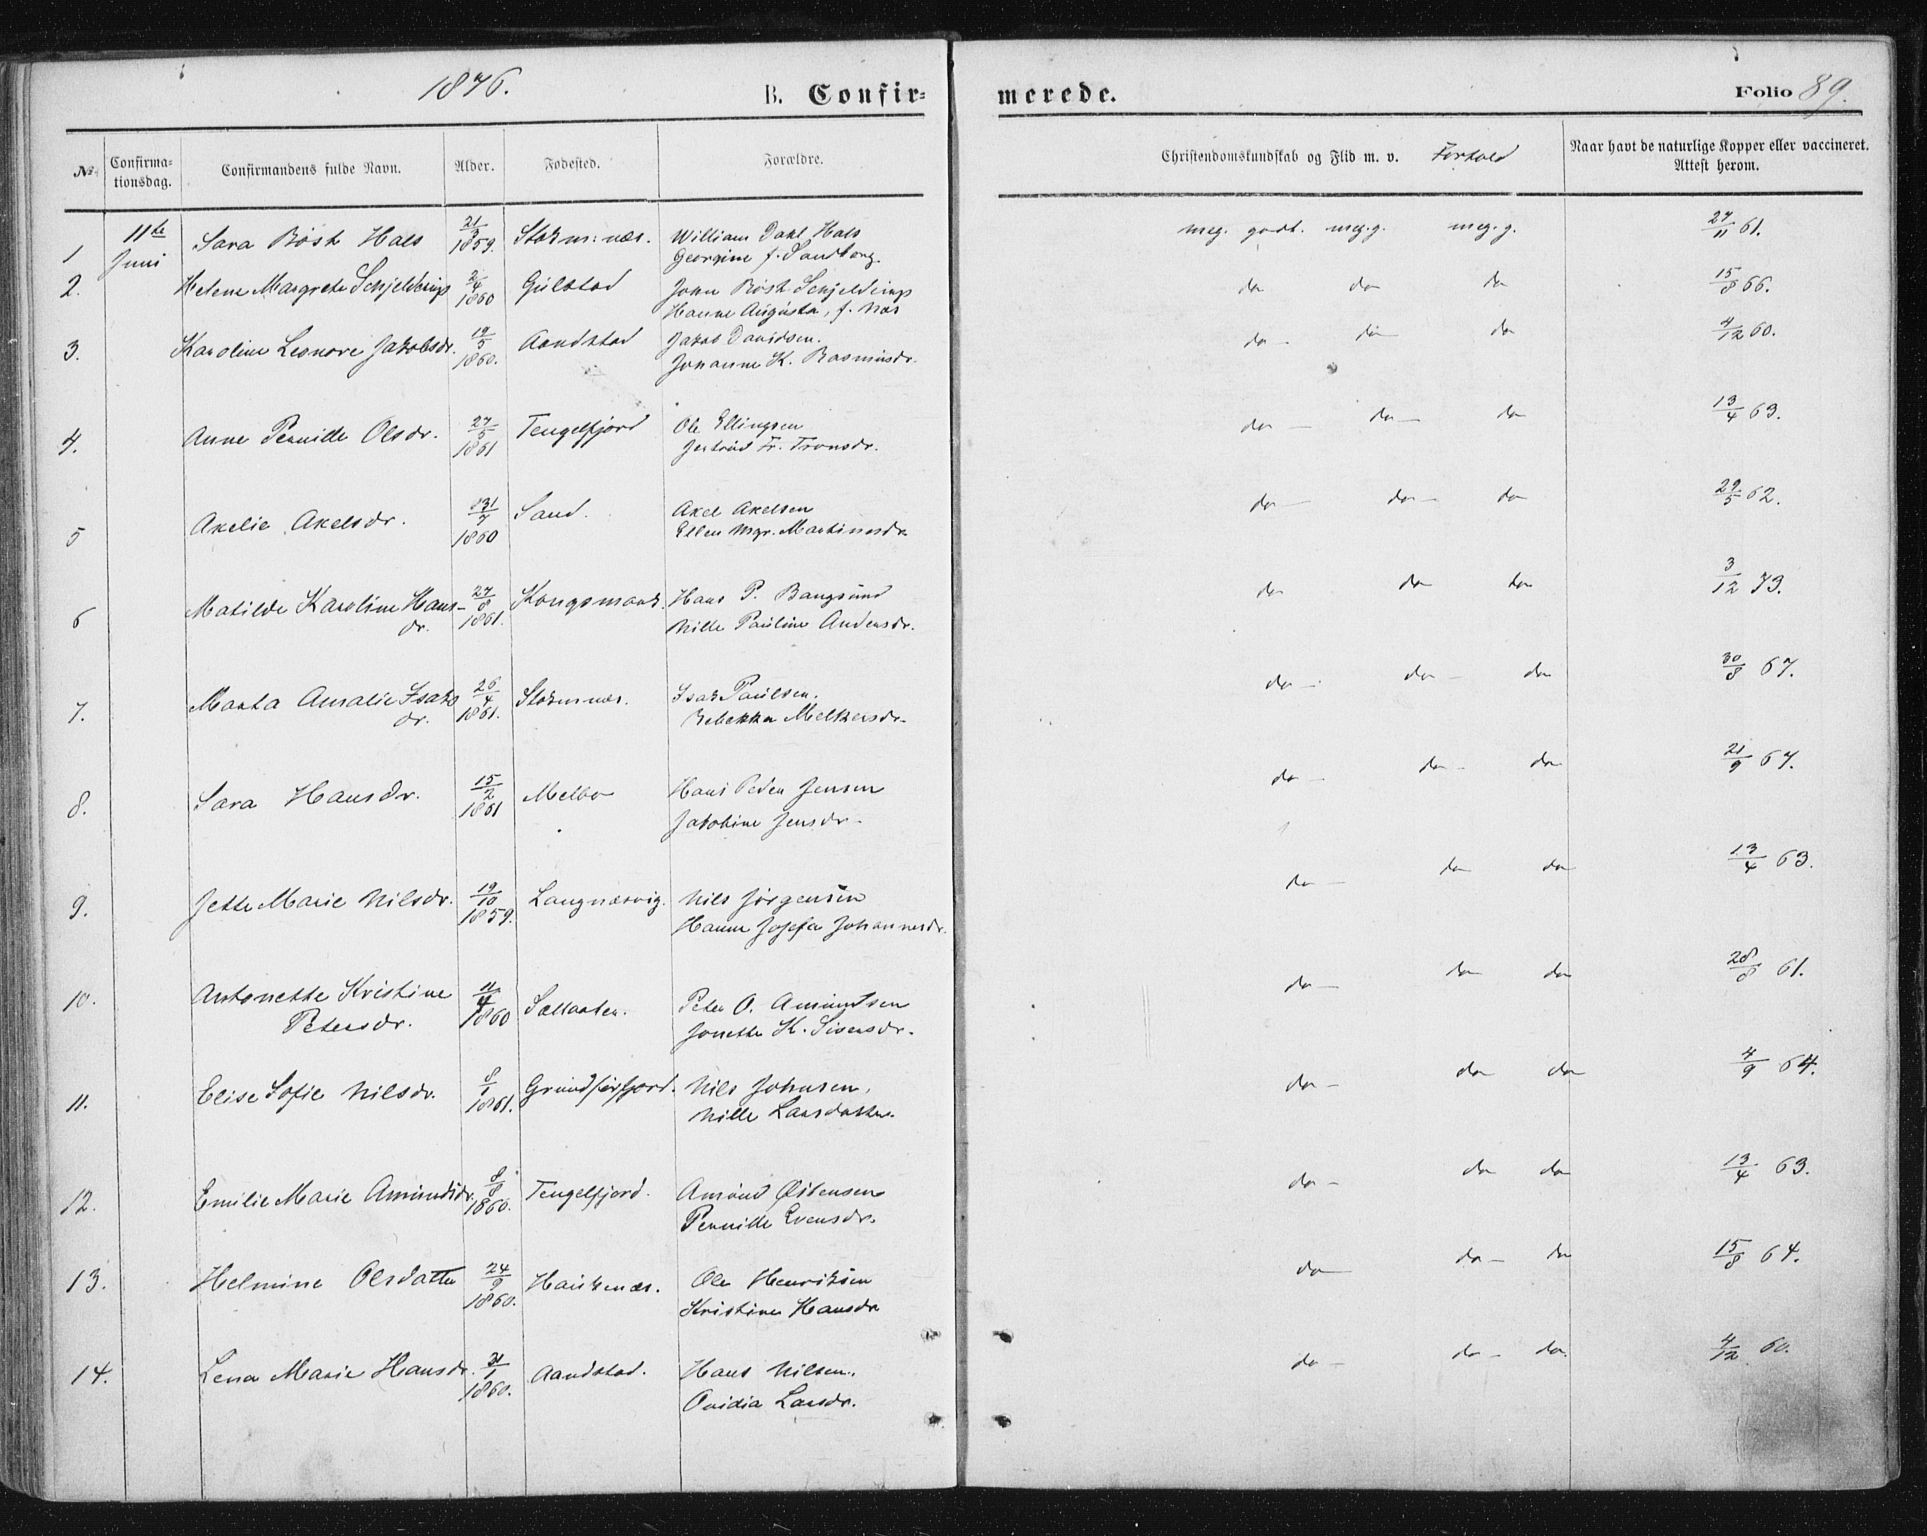 1876.
B. Confir-
merede.
Folio 89.
№
Confirma-
tionsdag.
Confirmandens fulde Navn.
Alder.
Fødested.
Forældre.
Christendomskundskab og Flid m. v. Forhold
Naar havt de naturlige Kopper eller vaccineret.
Attest herom.
1 11te Juni Sara Røst Hals 21/3 1859. Stokm:næs. William Dahl Hals
Georgine f. Sandborg.
meg. godt. meg.g. meg.g. 27/11 61.
2. Helene Margrete Schjelderup 2/4 1860 Gulstad John Røst Schjelderup
Hanne Augusta, f.
do do do 15/8 66.
3. Karoline Leonore Jakobsdr. 19/5 1860. Aandstad Jakob Davidsen.
Johanne K. Rasmusdr.
do do do 4/12 60.
4. Anne Pernille Olsdr. 27/5 1861 Tengelfjord Ole Ellingsen
Jertrud Fr. Tronsdr.
do do do 13/4 63.
5 Axelie Axelsdr. 31/7 1860 Sand. Axel Axelsen
Ellen Mgr. Martinusdr.
do do do 29/5 62.
6 Matilde Karoline Hans-
dr. 27/8 1861. Kongsmark. Hans P. Bangsund
Nille Pauline Andersdr.
do do do 3/12 73.
7. Marta Amalie Isaks
dr. 26/4 1861. Stokmnæs. Isak Paulsen.
Rebekka Melkersdr.
do do do 30/8 67.
8. Sara Hansdr. 15/2 1861 Melbo Hans Peder Jensen
Jakobine Jensdr.
do do do 21/9 67.
9. Jette Marie Nilsdr. 19/10 1859. Langnæsvig. Nils Jørgensen
Hanne Josefa Johannesdr.
do do do 13/4 63.
10. Antonette Kristine
Petersdr. 11/4 1860 Sællaaten. Peter O. Amundsen
Jonette K. Siversdr.
do do do 28/8 61.
11. Elise Sofie Nilsdr. 8/1 1861. Grundførfjord. Nils Johnsen,
Nille Larsdatter.
do do do 4/9 64.
12. Emilie Marie Amundsdr. 8/8 1860. Tengelfjord. Amund Østensen
Pernille Evensdr.
do do do 13/4 63.
13. Helmine Olsdatter 24/9 1860. Haukenæs. Ole Henriksen
Kristine Hansdr
do do do 15/8 64.
14. Lena Marie Hansdr. 31/1 1860. Aandstad. Hans Nilsen.
Ovidia Larsdr.
do do do. 4/12 60.